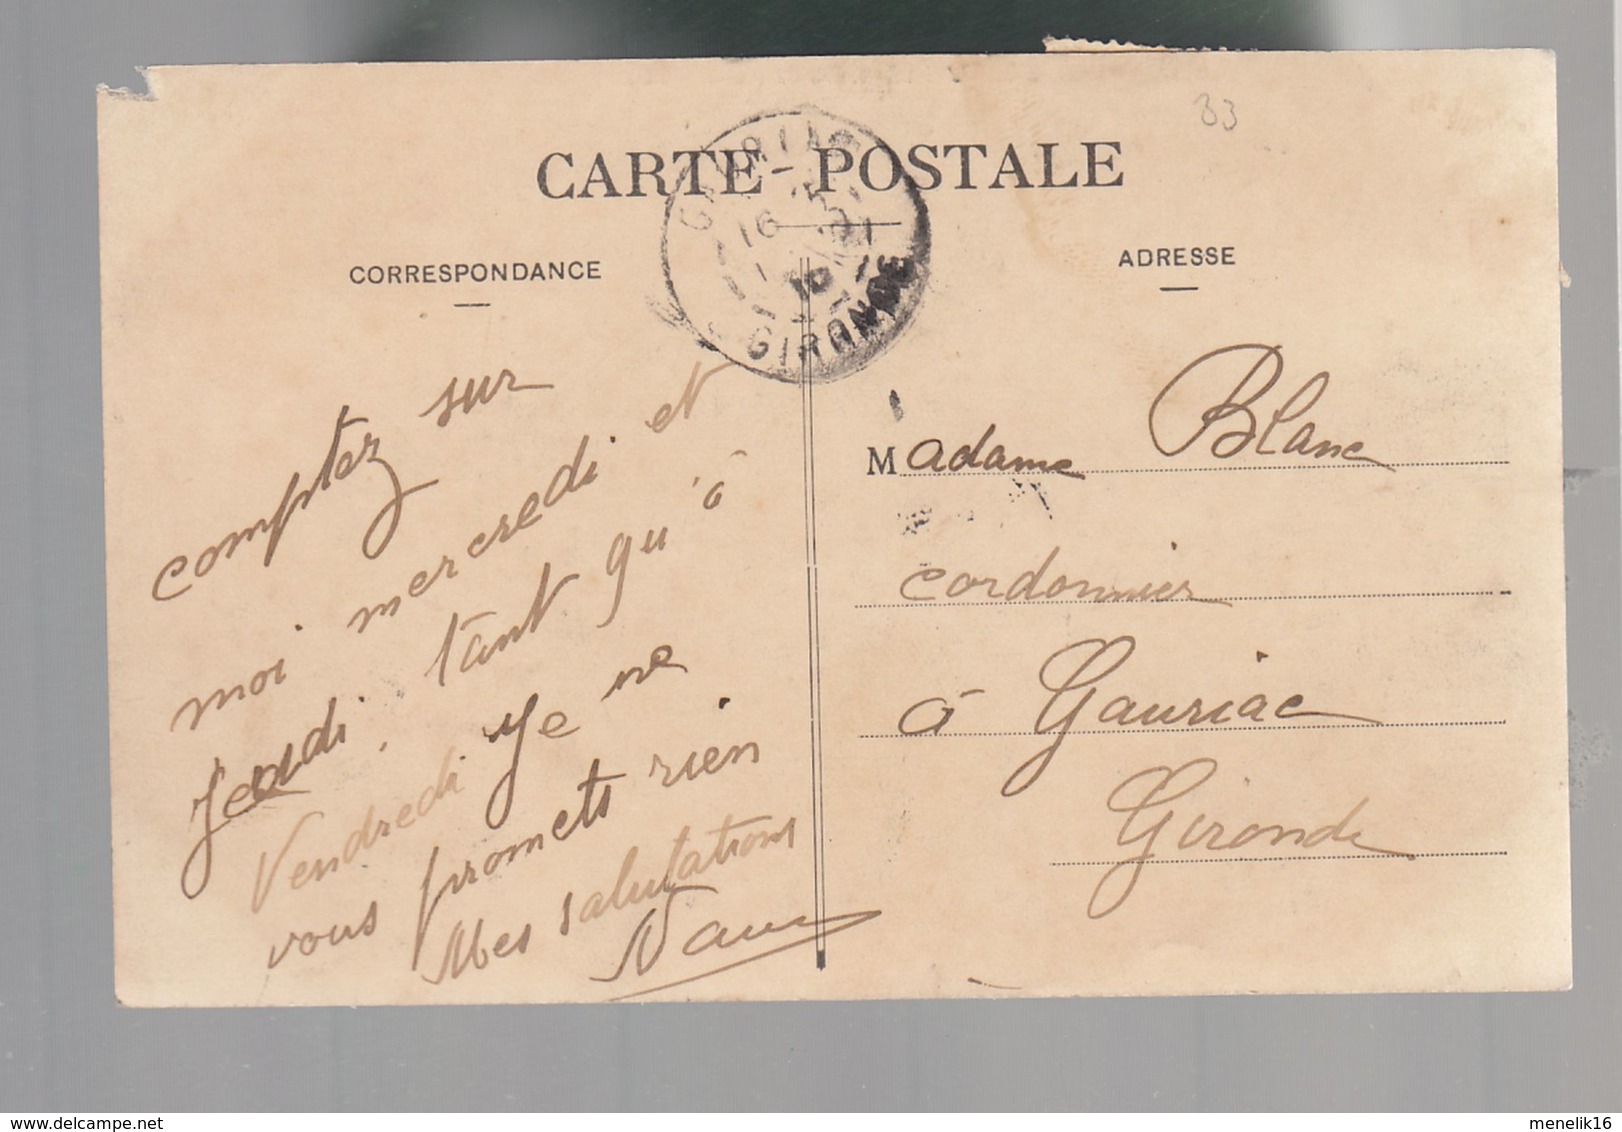 33
CARTE POSTALE
CORRESPONDANCE
ADRESSE
GAURIAC
16
GIRONDE
comptez sur
moi mercredi et
Jeudi. tant qu'à
Vendredi Je ne
vous promets rien
Mes salutations
Madame Blanc
cordonnier
à Gauriac
Gironde
menelik16